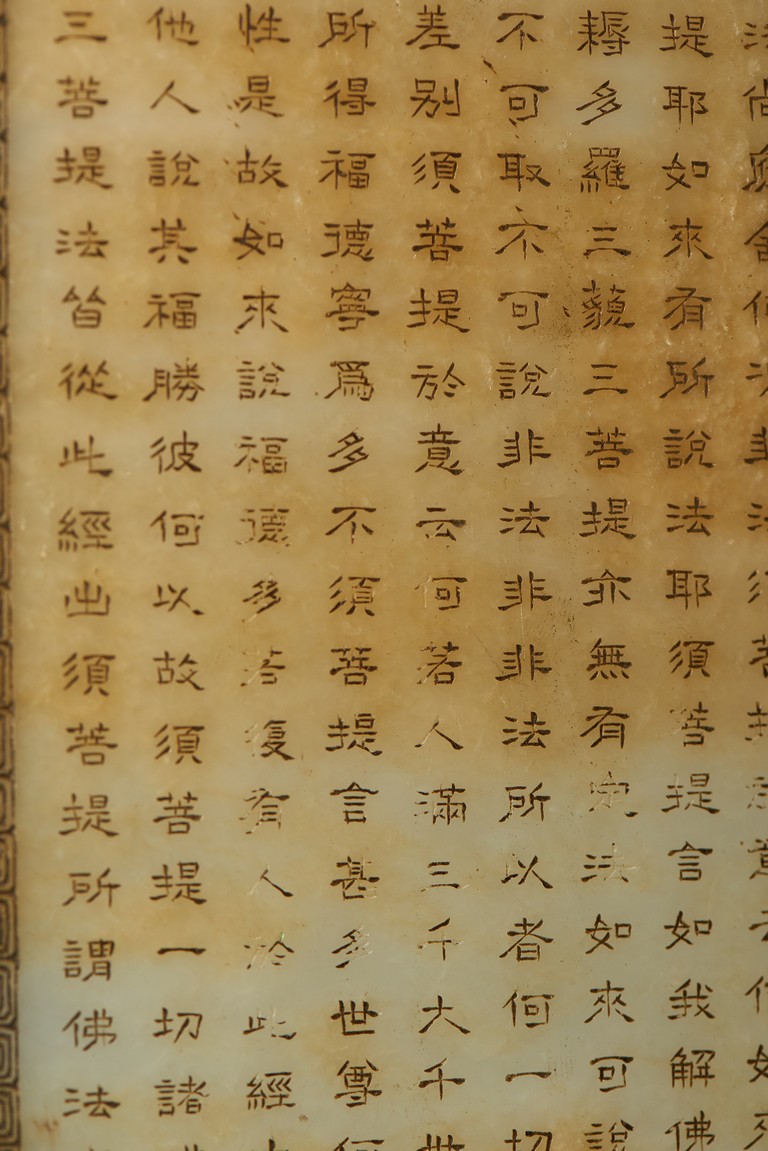 法尚應舍何況非法須菩提於意云何如來
提耶如來有所說法耶須菩提言如我解佛
耨多羅三藐三菩提亦無有定法如來可說
不可取不可說非法非非法所以者何一切
差别須菩提於意云何若人滿三千大千世
所得福德寧爲多不須菩提言甚多世尊何
性是故如來說福德多若復有人於此經
他人說其福勝彼何以故須菩提一切諸
三菩提法皆從此經出須菩提所謂佛法